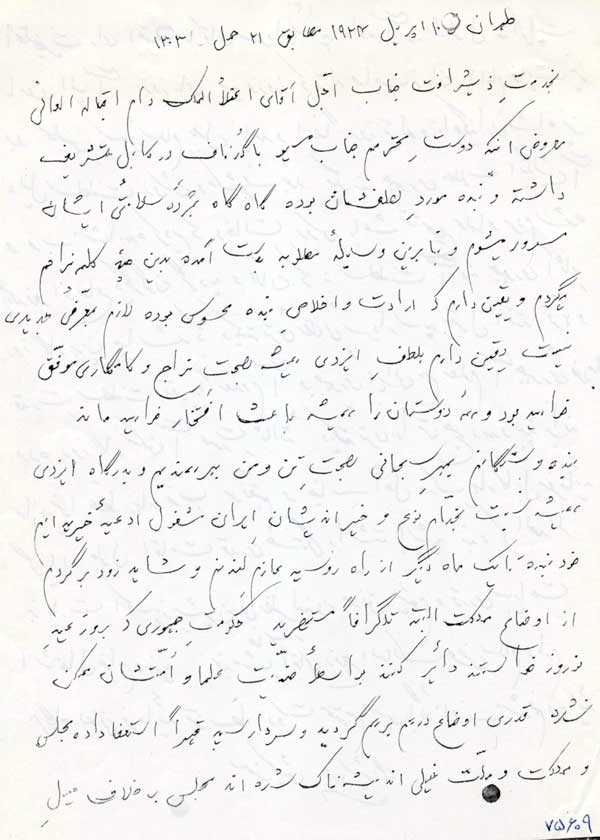 طهران ۱۰ اپریل ۱۹۲۴ مطابق ۲۱ حمل ۱۳۰۳
خدمت ذیشرافت جناب اجل آقای اعتلاء الملک دام اقباله العالی
معروض آنکه دوست محترم جناب مسیو در کابل تشریف
داشته و بنده مورد لطفشان بوده گاه گاه بمژدهٔ سلامتی ایشان
مسرور میشوم و بنابرین وسیلهٔ مطلوبه بدست آمده بدین کلمه مزاحم
میگردم و یقین دارم که ارادت و اخلاص بنده محسوس بوده لازم بمعرّفی جدیدی
نیست یقین دارم بلطف ایزدی همیشه بصحت مزاج و کامکاری موفّق
خواهید بود و همهٔ دوستان را همیشه باعث افتخار خواهید ماند
بنده و بستگانم بمهر سبحانی بصحت تن و من بهره‌مندیم و بدرگاه ایزدی
همیشه نسبت بتمام نوع و خیراندیشان ایران مشغول ادعیهٔ خیریه ایم
خود بنده تا یک ماه دیگر از راه روسیه عازم لندنم و شاید زود برگردم
از اوضاع مملکت البته تلگرافاً مستحضرید حکومت جمهوری که بروز عید
نوروز خواستند دائر کنند بواسطهٔ ضدّیت علما و امّتشان ممکن
نشده قدری اوضاع درهم برهم گردید و سردار سپه قهراً استعفا داده مجلس
و مملکت و ملّت خیلی اندیشه‌ناک شده اند مجلس بر خلاف میل
۷۵۶۰۹